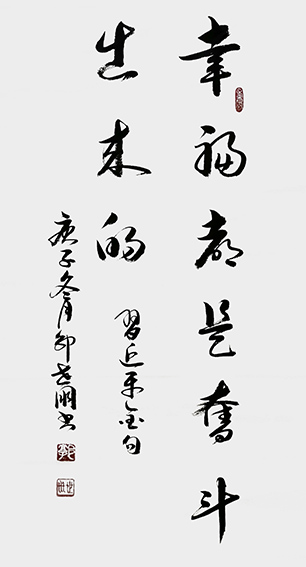 幸福都是奋斗
出来的
習近平金句
庚子冬月邵世朋书